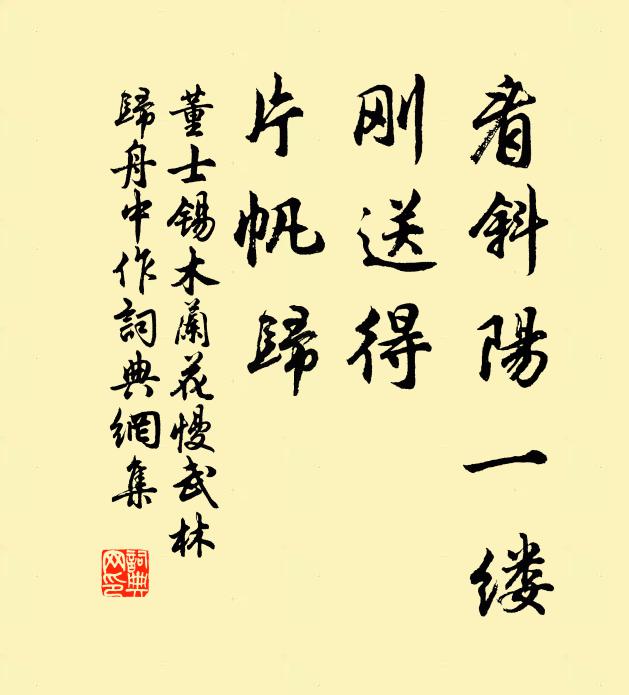 看斜陽一缕
刚送得
片帆歸
董士锡木蘭花慢武林
歸舟中作詞典網集
詞典网印